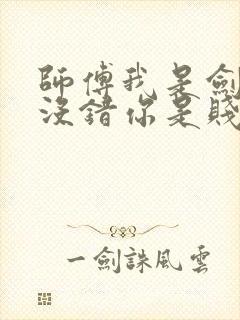 師傅我是劍
沒錯你是賤
一劍誅風雲